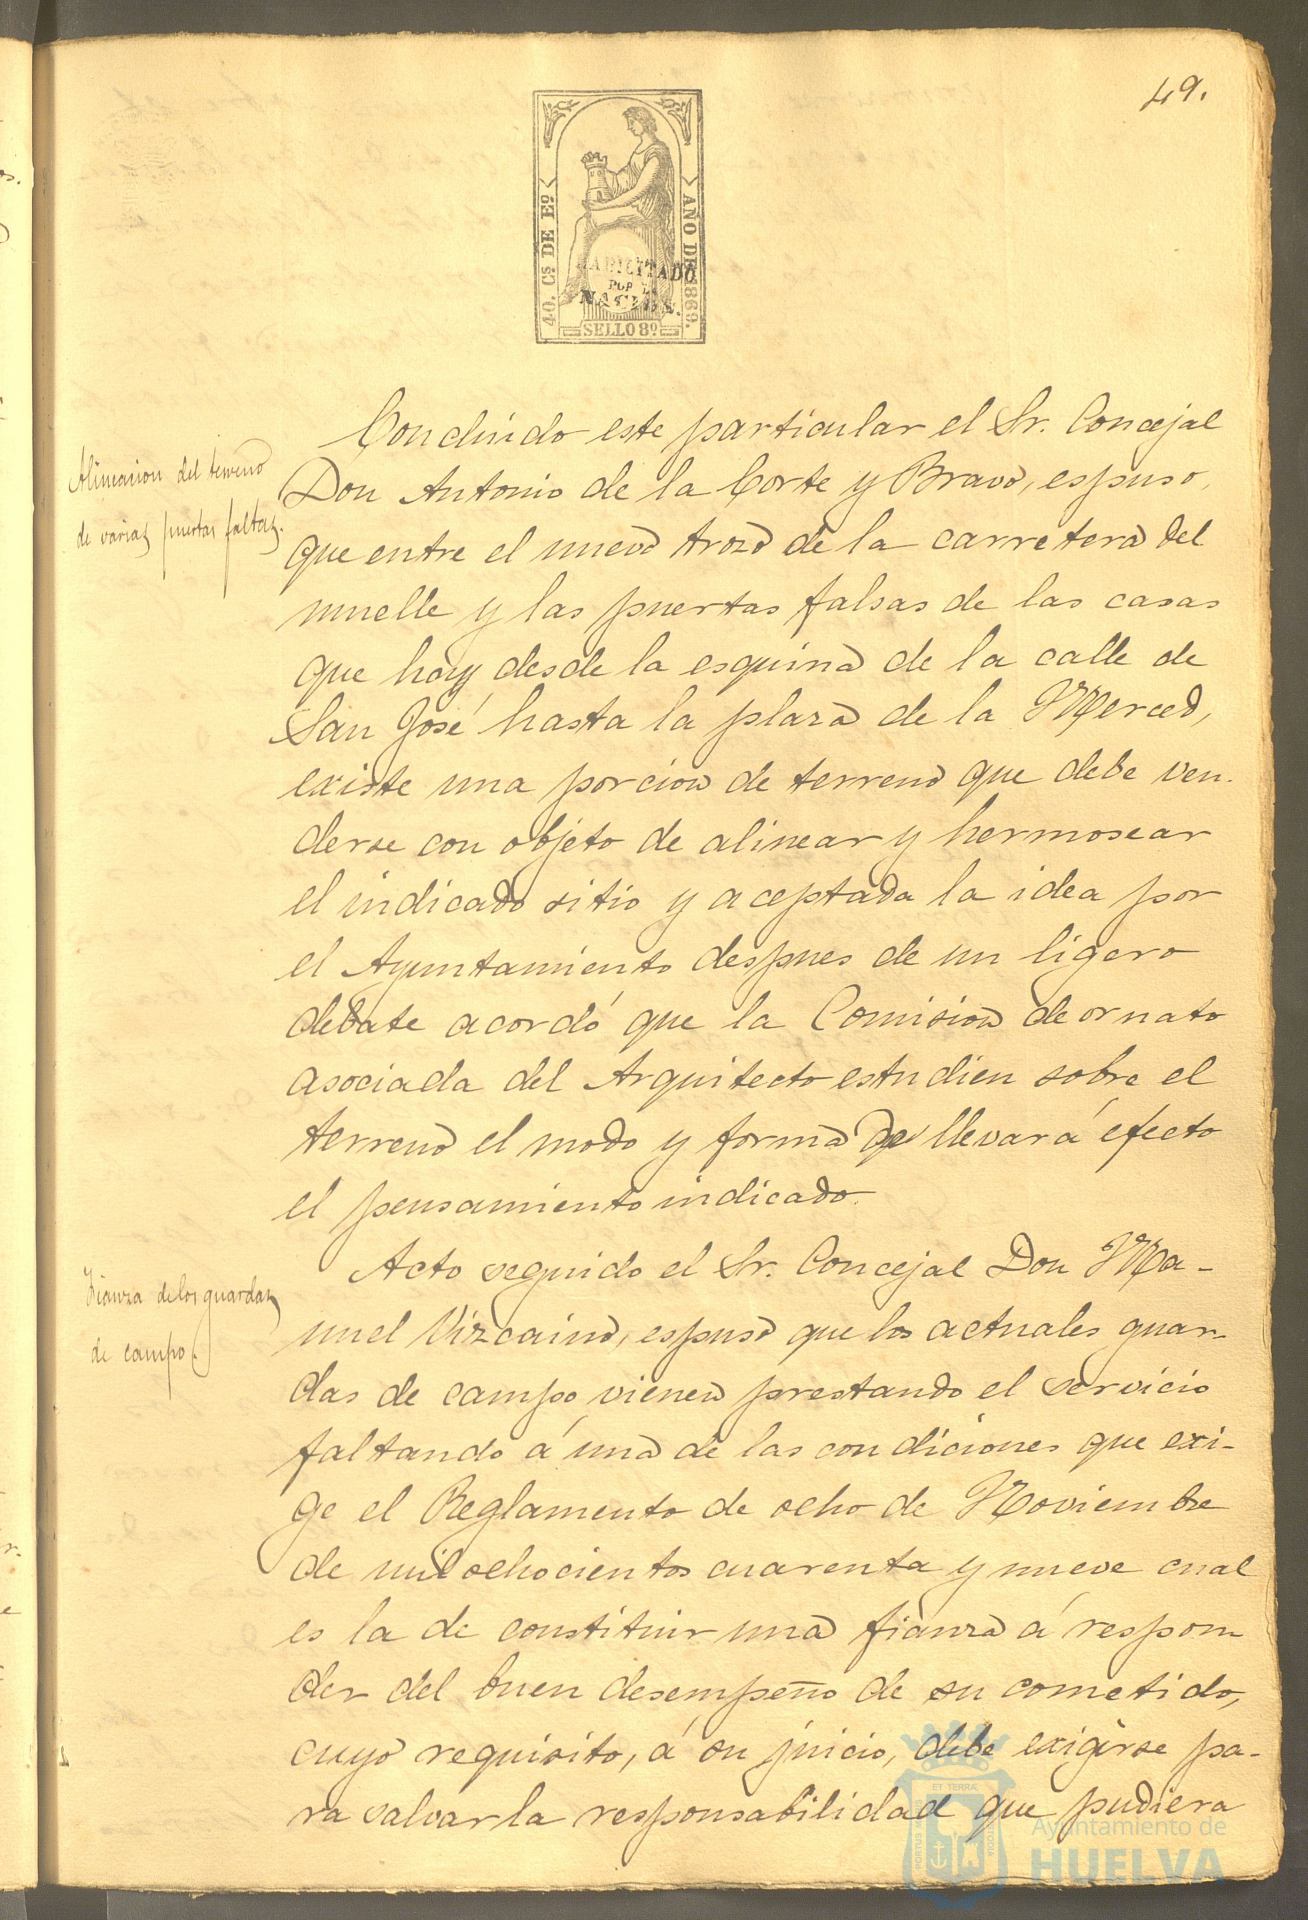 49.
40. Cs DE Eo
AÑO DE 1869.
HABILITADO
POR LA
NACION.
SELLO 8o
Alineacion del terreno
de varias puertas faltas.
Concluido este particular el Sr. Concejal
Don Antonio de la Corte y Bravo, espuso,
que entre el nuevo trozo de la carretera del
muelle y las puertas falsas de las casas
que hay desde la esquina de la calle de
San José hasta la plaza de la Merced,
existe una porcion de terreno que debe ven-
derse con objeto de alinear y hermosear
el indicado sitio y aceptada la idea por
el Ayuntamiento despues de un ligero
debate acordó que la Comision de ornato
asociada del Arquitecto estudien sobre el
terreno el modo y forma de llevar á efecto
el pensamiento indicado.
Fianza de los guardas
de campo.
Acto seguido el Sr. Concejal Don Ma-
nuel Vizcaino, espuso que los actuales guar-
das de campo vienen prestando el servicio
faltando á una de las condiciones que exi-
ge el Reglamento de ocho de Noviembre
de mil ochocientos cuarenta y nueve cual
es la de constituir una fianza á respon-
der del buen desempeño de su cometido,
cuyo requisito, á su juicio, debe exigirse pa-
ra salvar la responsabilidad que pudiera
PORTUS MARIS ET TERRÆ CUSTODIA
Ayuntamiento de
HUELVA